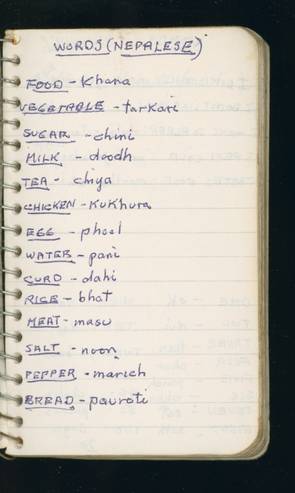 WORDS (NEPALESE)
FOOD - Khana
VEGETABLE - tarkari
SUGAR - chini
MILK - doodh
TEA - chiya
CHICKEN - KuKhura
EGG - phool
WATER - pani
CURD - dahi
RICE - bhat
MEAT - masu
SALT - noon
PEPPER - marich
BREAD - pauroti